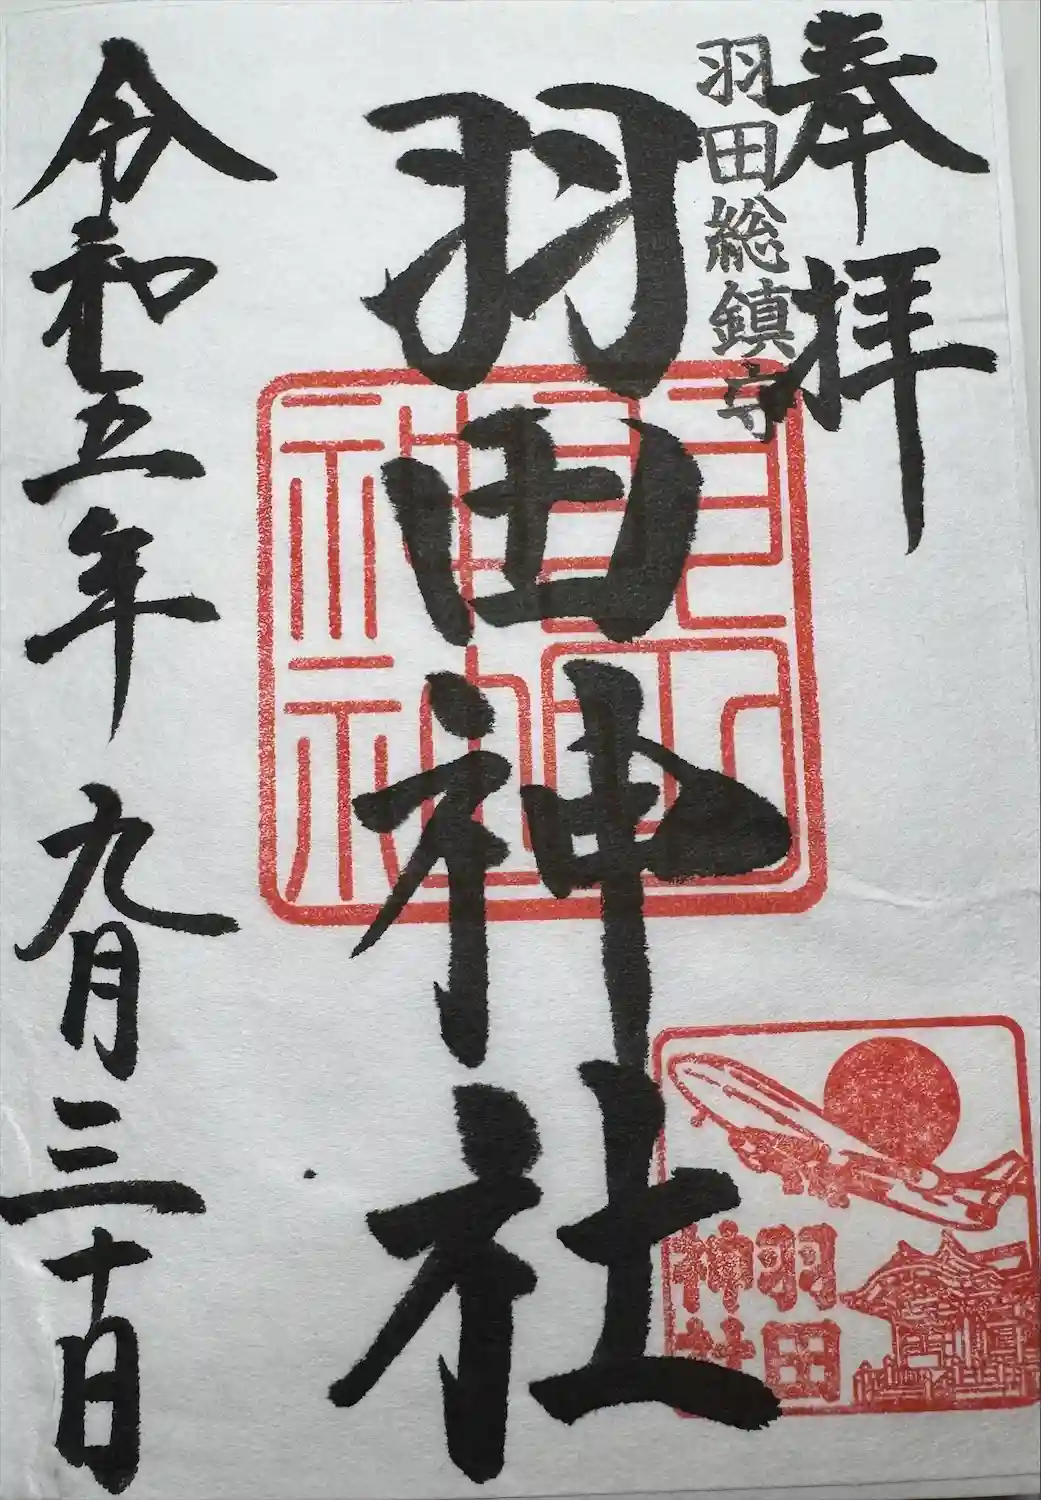 奉拝
羽田総鎮守
羽田神社
羽田
神社
令和五年九月三十日